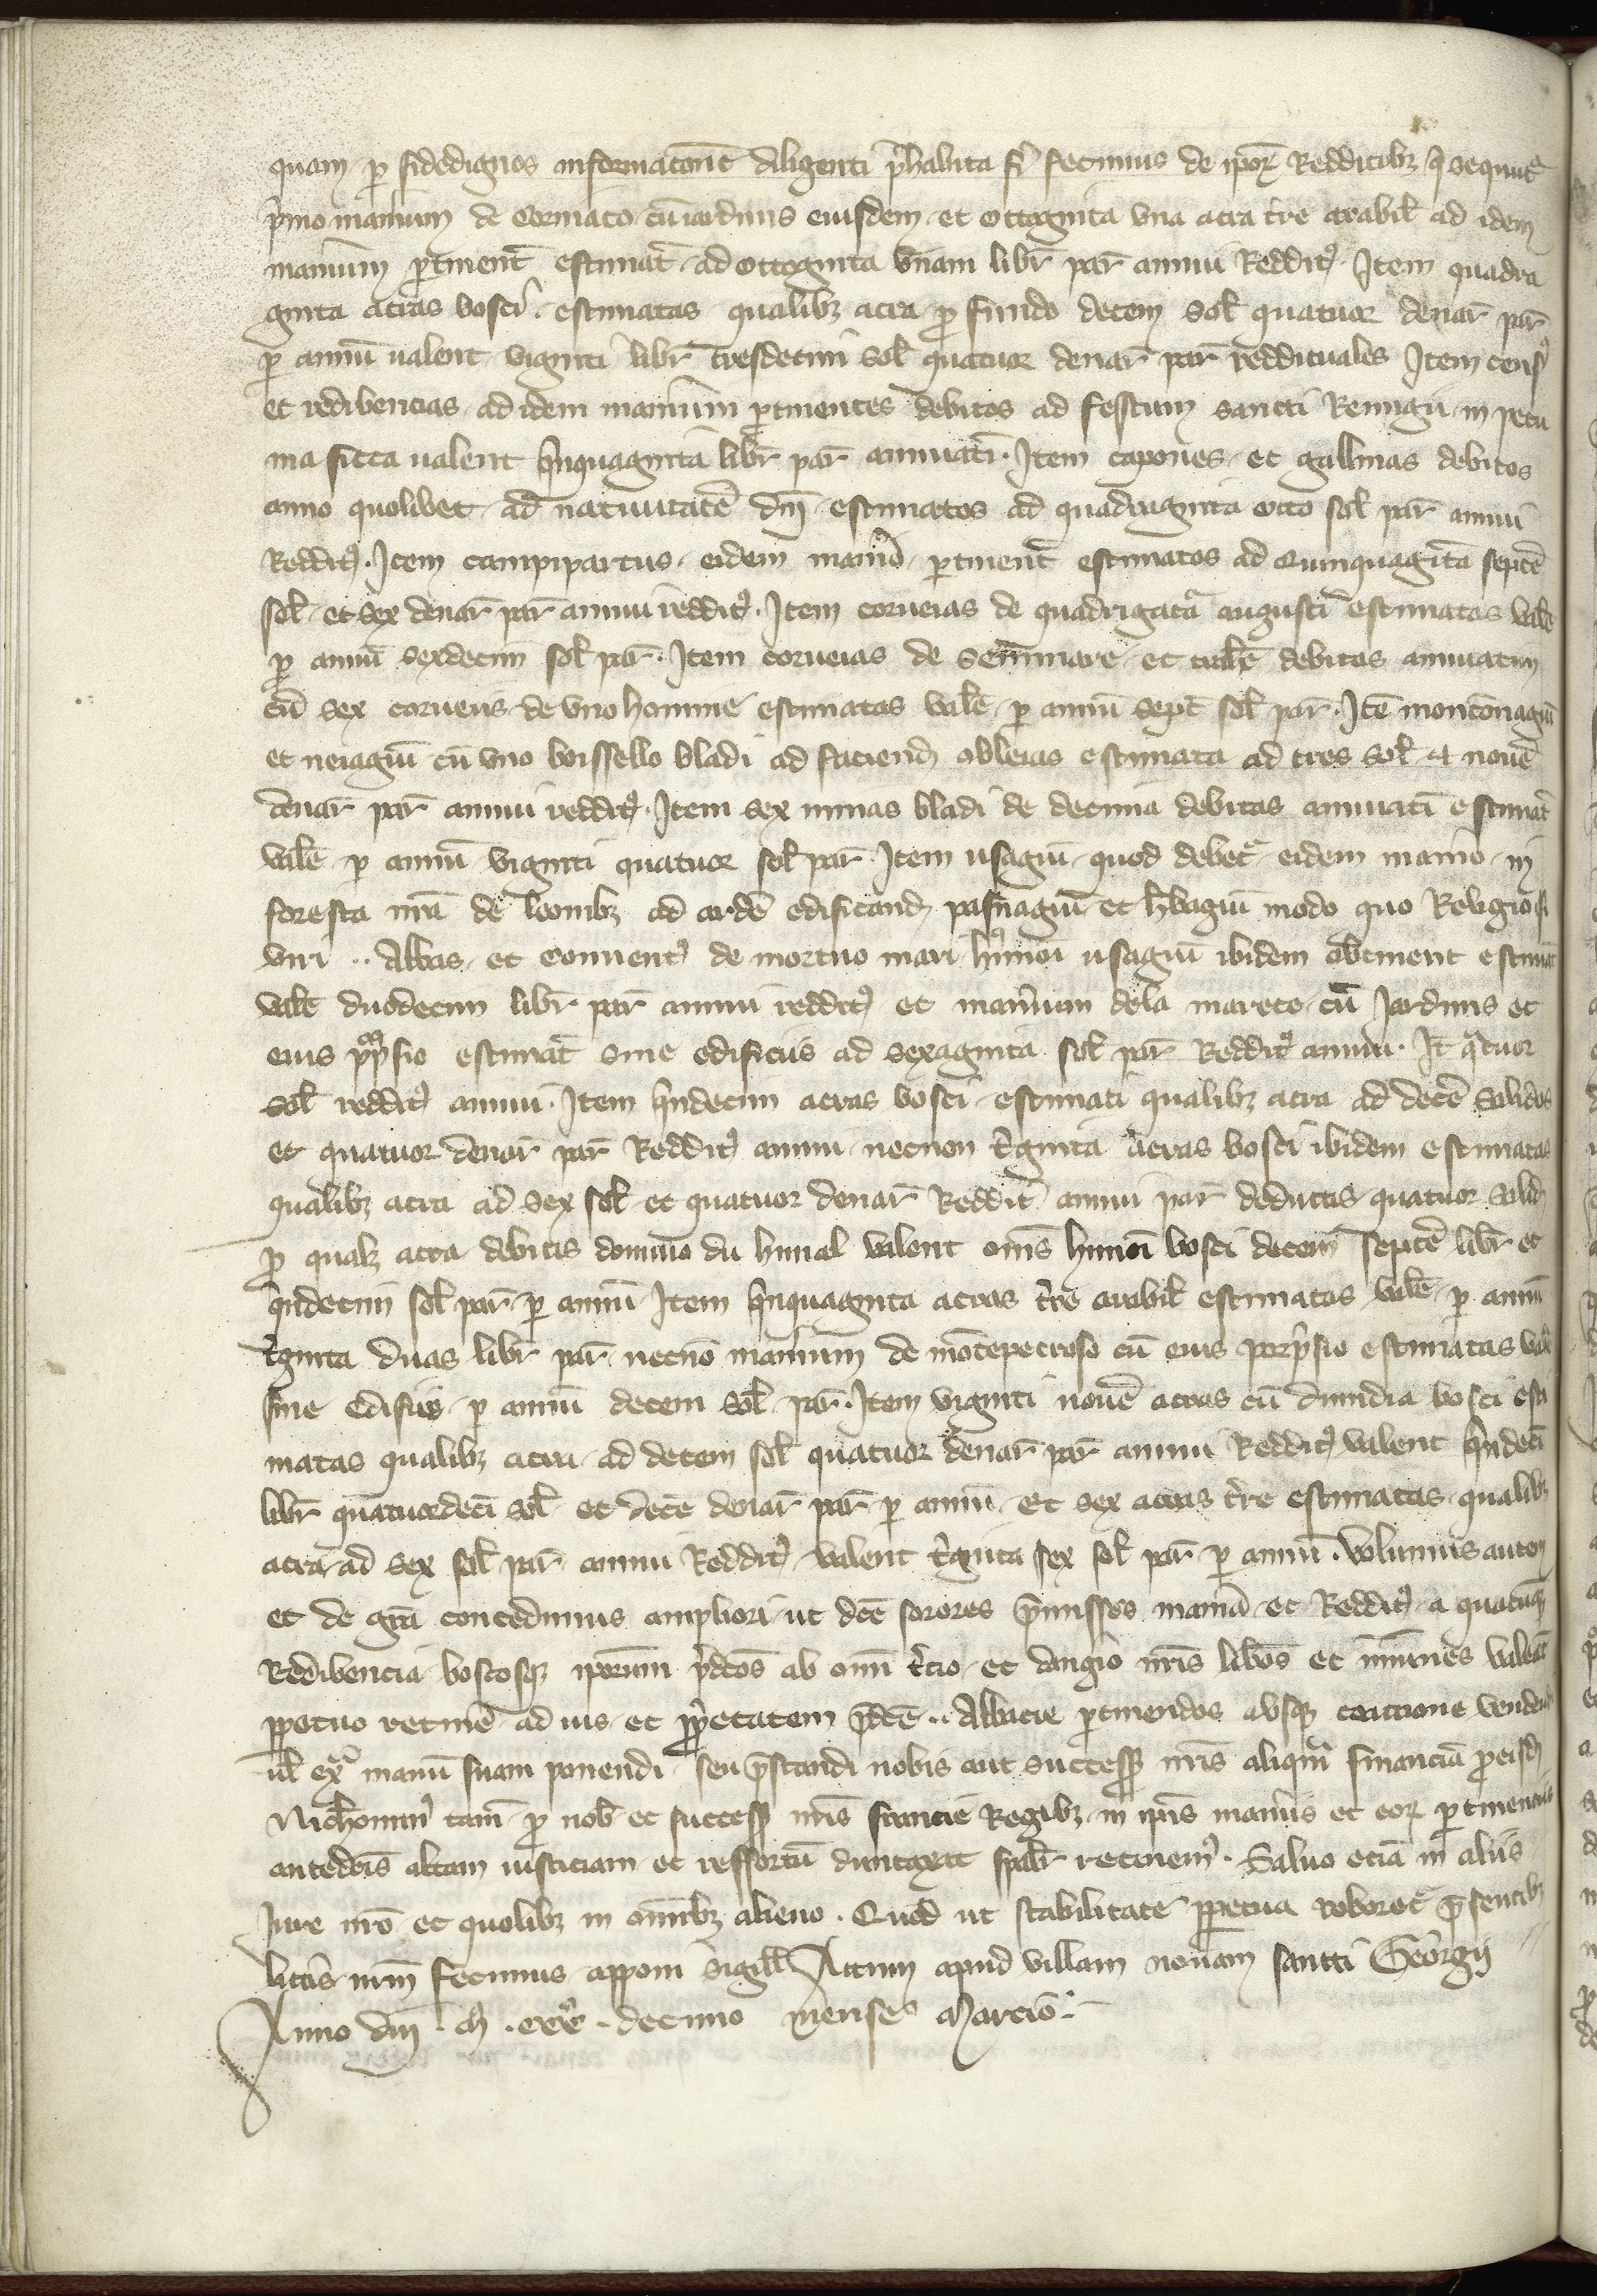 quam per fidedignos informacōne diligenti p̄habita fi͛ fecimus de ipoꝝ Redditibꝫ q̄ sequūt᷑
p͛mo maneriū de Cormato cū iardinis eiusdem et octoginta una acra t͛re arabil̄ ad idem
maneriū ꝑtinent̄ estimat̄ ad octoginta unam libr̄ par̄ annui Redditꝰ Item quadra
ginta acras bosci estimatas qualibꝫ acra pro fundo decem sol̄ quatuor denar̄ par̄
ꝑ annū valent viginti libr̄ tresdecim sol̄ quatuor denar̄ par̄ reddituales Item censꝰ
et redibencias ad idem maneriū ꝑtinentes debitos ad festum sancti Remigii in pecu
nia sicca valent q̄nquaginta libr̄ par̄ annuatī Item capones et gallinas debitos
anno quolibet ad nativitatē dn̄i estimatos ad quadraginta octo sol̄ par̄ annui
Redditꝰ Item campipartus eidem man̄io ꝑtinent̄ estimatos ad Quinquagīta septē
sol̄ et sex denar̄ par̄ annui redditꝰ Item corveias de quadrigat᷑a augusti estimatas val̄e
ꝑ annū sexdecim sol̄ par̄ Item corveias de seminare et debitas annuatim
cū sex corveiis de uno homine estimatas val̄e ꝑ annū sept̄ sol̄ par̄ Itē montonagiū
et neiagiū cū uno boissello bladi ad faciend̄ obleias estimata ad tres sol̄ et novē
denar̄ par̄ annui redditꝰ Item sex minas bladi de decima debitas annuatī estimat̄
val̄e ꝑ annū viginti quatuor sol̄ par̄ Item usagiū quod debet᷑ eidem man̄io in
foresta nr̄a de leonibꝫ ad ardē edificand̄ pasnagiū et h̄bagiū modo quo Religiosi
viri .. Abbas et Conventꝰ de mortuo mari hꝰmōi usagiū ibidem obtinent estimat̄
val̄e duodecim libr̄ par̄ annui redditꝰ et man̄ium dela marete cū Jardinis et
eius ꝓpͥsio estimat̄ sine edificiis ad sexaginta sol̄ par̄ Redditꝰ annui It̄ q̄tuor
sol̄ redditꝰ annui Item q̄ndecim acras bosci estimati qualibꝫ acra ad decē solidos
et quatuor denar̄ par̄ Redditꝰ annui necnon t͛ginta acras bosci ibidem estimatas
qualibꝫ acra ad sex sol̄ et quatuor denar̄ Reddit̄ annui par̄ deductis quatuor solid̄
pro qualꝫ acra debitis domino du valent oms̄ hūmōi bosci decem septē libr̄ et
q̄ndecim sol̄ par̄ ꝑ annū Item q̄nquaginta acras t͛re arabil̄ estimatas val̄e ꝑ annū
t͛ginta duas libr̄ par̄ necnō man̄ium de mōtepetroso cū eius porp͛sio estimatas val̄e
sine edifiis ꝑ annū decem sol̄ par̄ Item viginti novē acras cū dimidia bosci esti
matas qualibꝫ acra ad decem sol̄ quatuor denar̄ par̄ annui Redditꝰ valent q̄ndecī
libr̄ quatuordecī sol̄ et decē denar̄ par̄ ꝑ annū Et sex acras t͛re estimatas qualibꝫ
acra ad sex sol̄ par̄ annui Redditꝰ valent t͛ginta sex sol̄ par̄ ꝑ annū Volumus autem
et de gr̄a concedimus ampliori ut dc̄e sorores p̄missos man̄ia et Redditꝰ a quacūqꝫ
Redibencia boscosqꝫ ipsorum p̄dc̄os ab omī t͛cio et dangio nr̄is lib̄os et immunes valeāt
ꝑpetuo retinē ad ius et ꝓp͛etatem p̄dc̄e .. Abbacie ꝑtinendos absqꝫ coactione vendendi
ul̄ ext᷑ manū suam ponendi seu p̄standi nobis aut successꝫ nr̄is aliqm̄ financiā pro eisdē
Nichomin͛ tam̄ pro nob̄ et successꝫ nr̄is francie Regibꝫ in ip̄is man̄iis et eoꝝ ꝑtinenciis
antedc̄is altam iusticiam et ressortū duntaxat sp̄al͛r retinem͛ Salvo eciā in aliis
Jure nr̄o et quolibꝫ in omnibꝫ alieno Quod ut stabilitate ꝑpetua roboret᷑ p̄sentibꝫ
litt͛is nr̄m fecimus apponi sigill̄ Actum apud villam novam sancti Georgii
Anno dn̄i M ccc̊ decimo mense Marcio